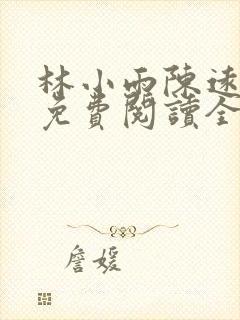 林小雨陳遠
免費閱讀全
詹媛